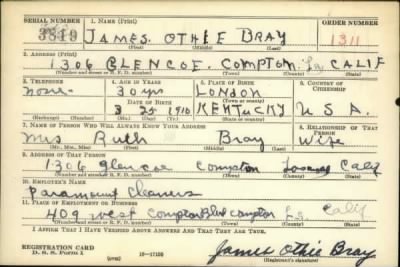 SERIAL NUMBER 1. NAME (Print) ORDER NUMBER
3849 JAMES OTHIE BRAY 1311
(First) (Middle) (Last)
2. ADDRESS (Print)
1306 GLENCOE. COMPTON LA CALIF
(Number and street or R. F. D. number) (Town) (County) (State)
3. TELEPHONE 4. AGE IN YEARS 5. PLACE OF BIRTH 6. COUNTRY OF CITIZENSHIP
none 30 yrs LONDON
DATE OF BIRTH (Town or county)
3 25 1910 KENTUCKY U S A.
(Exchange) (Number) (Mo.) (Day) (Yr.) (State or country)
7. NAME OF PERSON WHO WILL ALWAYS KNOW YOUR ADDRESS 8. RELATIONSHIP OF THAT PERSON
Mrs Ruth Bray Wife
(Mr., Mrs., Miss) (First) (Middle) (Last)
9. ADDRESS OF THAT PERSON
1306 glencoe Compton Calif
(Number and street or R. F. D. number) (Town) (County) (State)
10. EMPLOYER'S NAME
Paramount Cleaners
11. PLACE OF EMPLOYMENT OR BUSINESS
409 west Compton Blvd Compton La. Calif
(Number and street or R. F. D. number) (Town) (County) (State)
I AFFIRM THAT I HAVE VERIFIED ABOVE ANSWERS AND THAT THEY ARE TRUE.
REGISTRATION CARD
D. S. S. Form 1 (over) 16—17105 James Othie Bray
(Registrant's signature)